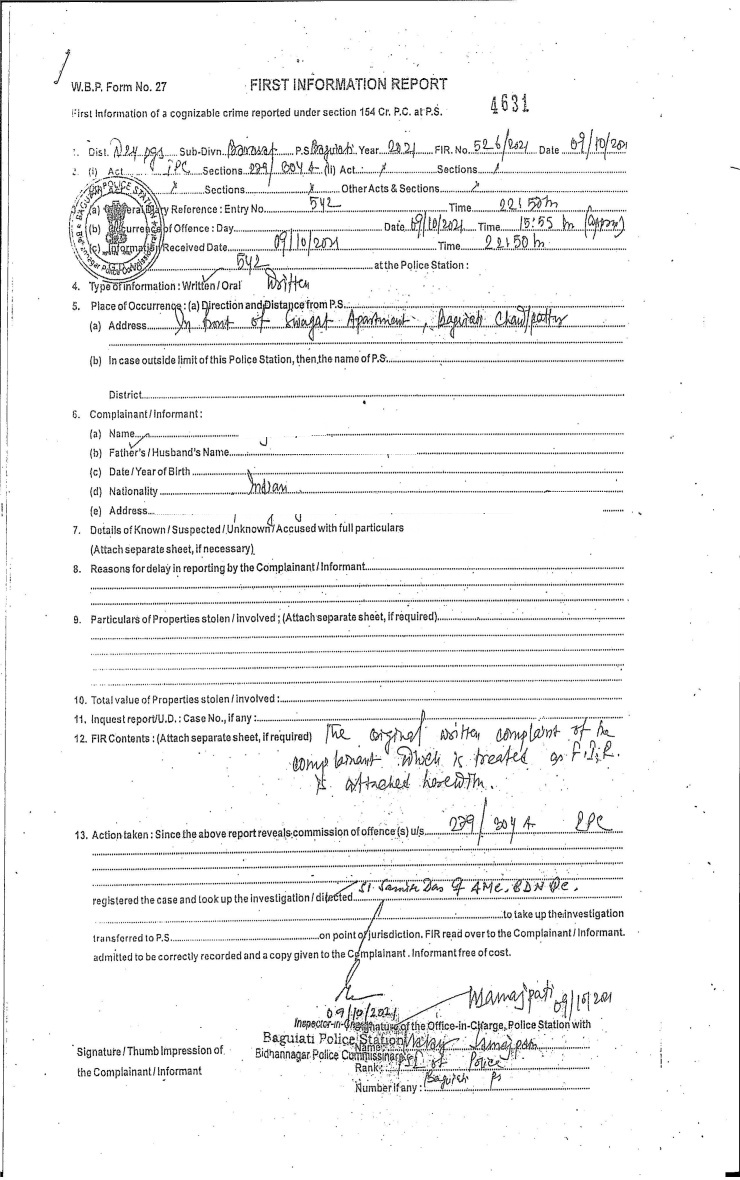 W.B.P. Form No. 27
FIRST INFORMATION REPORT
First Information of a cognizable crime reported under section 154 Cr. P.C. at P.S.
4631
1. Dist. N 24 pgs Sub-Divn. Barasat P.S. Baguiati Year 2021 FIR. No. 526/2021 Date 09/10/2021
2. (i) Act IPC Sections 279/304 A (ii) Act : x Sections x
x Sections x Other Acts & Sections x
(a) General Diary Reference : Entry No. 542 Time 22:50 m
(b) Occurrence of Offence : Day Date 09/10/2021 Time 15:55 m (approx)
(c) Information Received Date 09/10/2021 Time 22:50 m
542 at the Police Station :
BAGUIATI POLICE STATION
4. Type of information : Written / Oral Written
5. Place of Occurrence : (a) Direction and Distance from P.S.
(a) Address In front of Swagat Apartment, Baguiati
(b) In case outside limit of this Police Station, then, the name of P.S.
District
6. Complainant / Informant :
(a) Name
(b) Father's / Husband's Name
(c) Date / Year of Birth
(d) Nationality Indian
(e) Address
7. Details of Known / Suspected / Unknown / Accused with full particulars
(Attach separate sheet, if necessary)
8. Reasons for delay in reporting by the Complainant / Informant
9. Particulars of Properties stolen / involved ; (Attach separate sheet, if required)
10. Total value of Properties stolen / involved :
11. Inquest report/U.D. : Case No., if any :
12. FIR Contents : (Attach separate sheet, if required) The original written complaint of the
complainant which is treated as F.I.R.
is attached herewith.
13. Action taken : Since the above report reveals commission of offence(s) u/s 279/304 A IPC
registered the case and took up the investigation / directed SI Samir Das of
to take up the investigation
transferred to P.S. on point of jurisdiction. FIR read over to the Complainant / Informant.
admitted to be correctly recorded and a copy given to the Complainant . Informant free of cost.
09/10/2021
09/10/2021
Inspector-in-Charge
Signature of the Office-in-Charge, Police Station with
Baguiati Police Station
Name
Signature / Thumb Impression of
Bidhannagar Police Commissionerate
Rank : of Police
the Complainant / Informant
Number if any : Baguiati PS